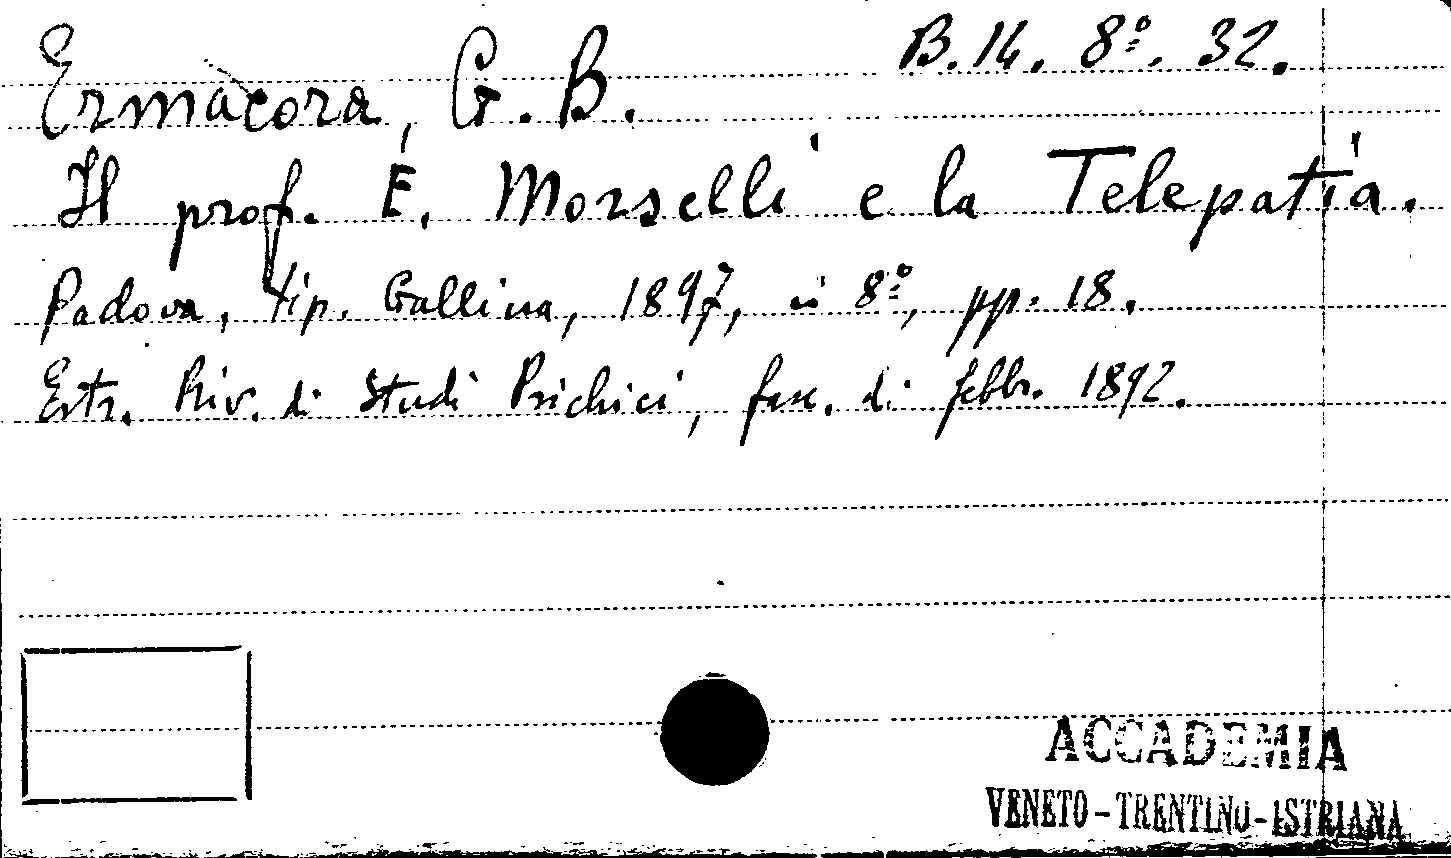 Ermàcora, G. B.
B.14. 8º. 32.
Il prof. E. Morselli e la Telepatia.
Padova, tip. Gallina, 1897, in 8º, pp. 18.
Estr. Riv. di Studi Psichici, fasc. di febbr. 1892.
ACCADEMIA
VENETO-TRENTINO-ISTRIANA